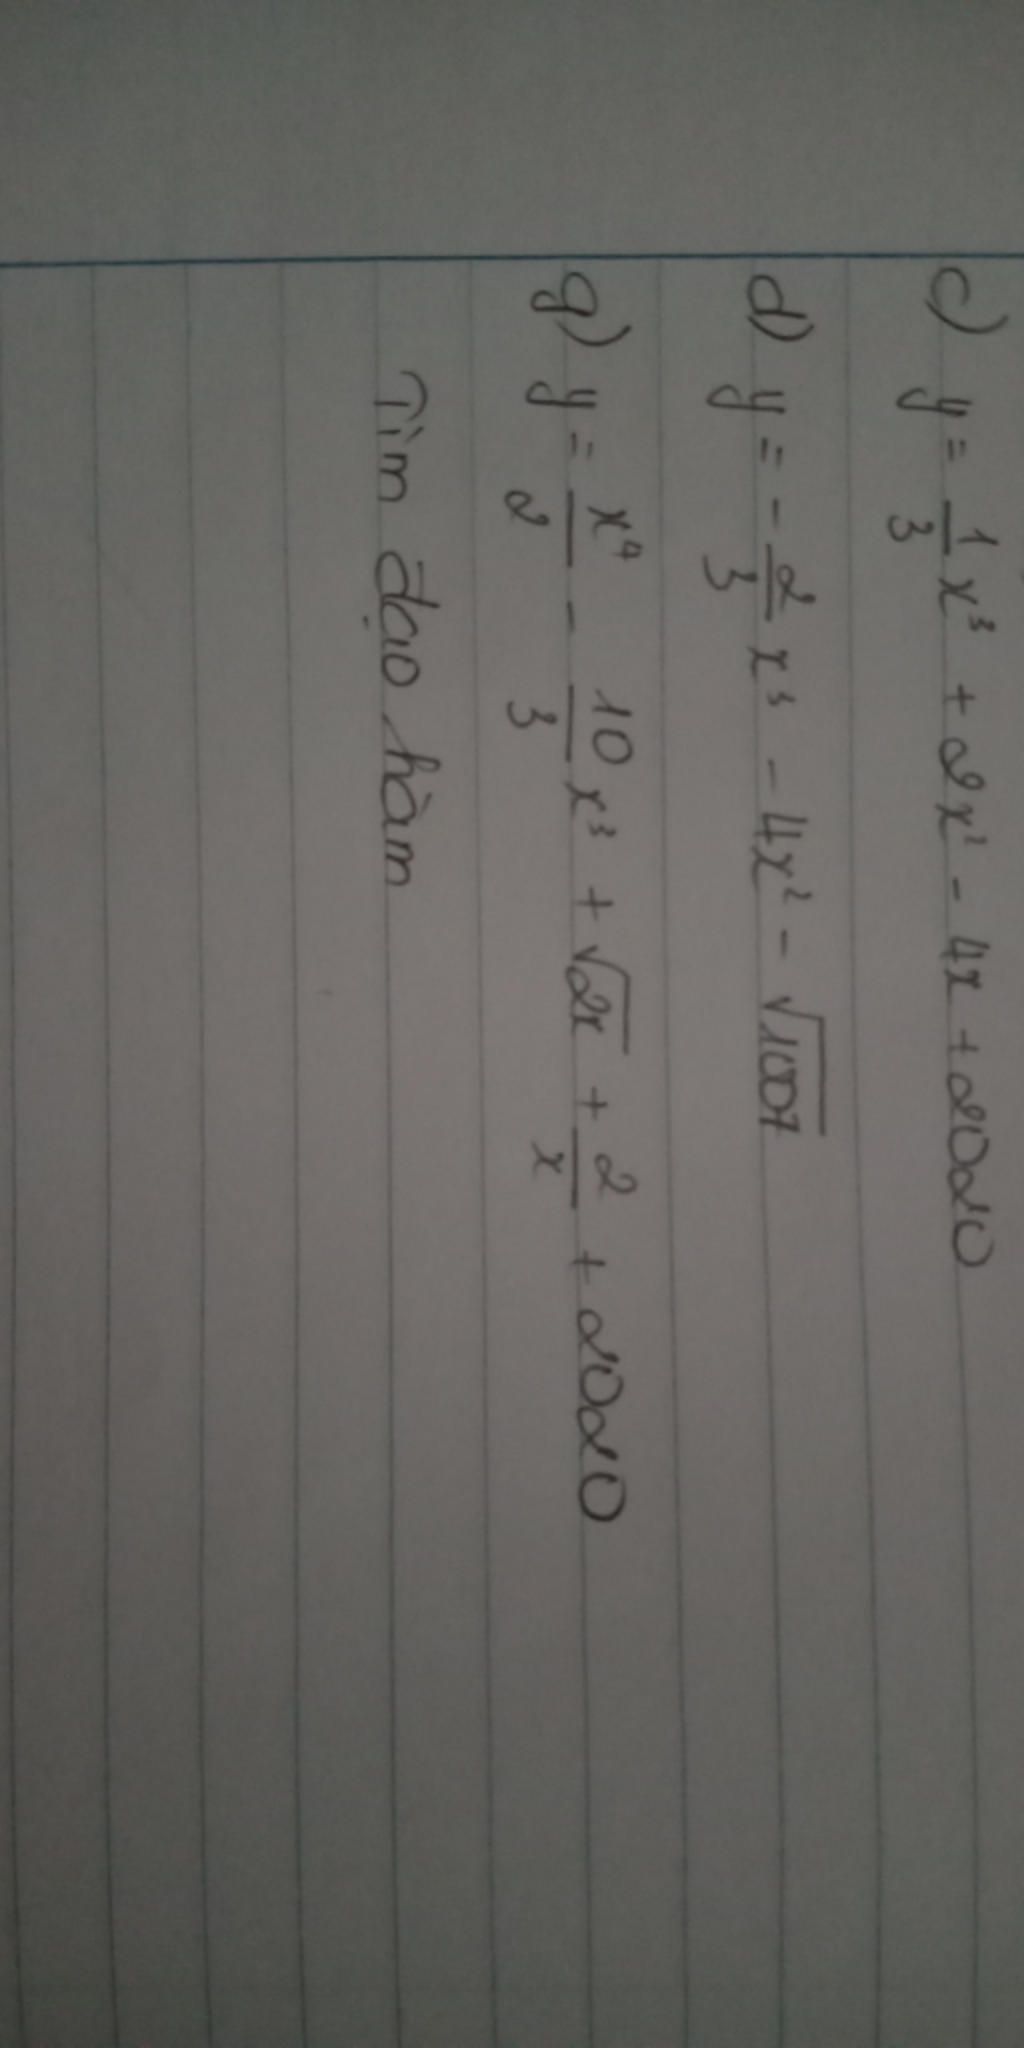 c) y = 1/3 x³ + 2x² - 4x + 2020
d) y = - 2/3 x³ - 4x² - √1007
g) y = x⁴/2 - 10/3 x³ + √2x + 2/x + 2020
Tìm đạo hàm